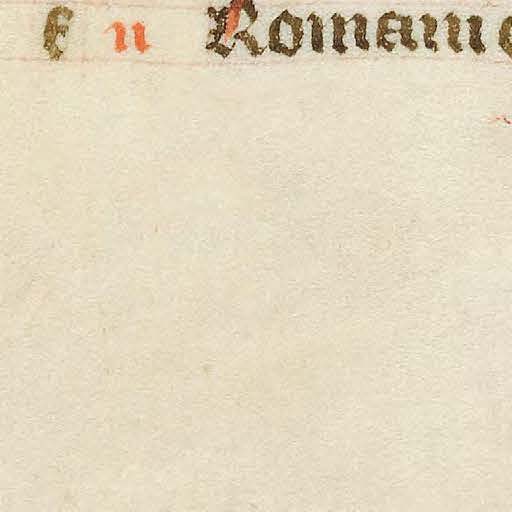 f n Romani